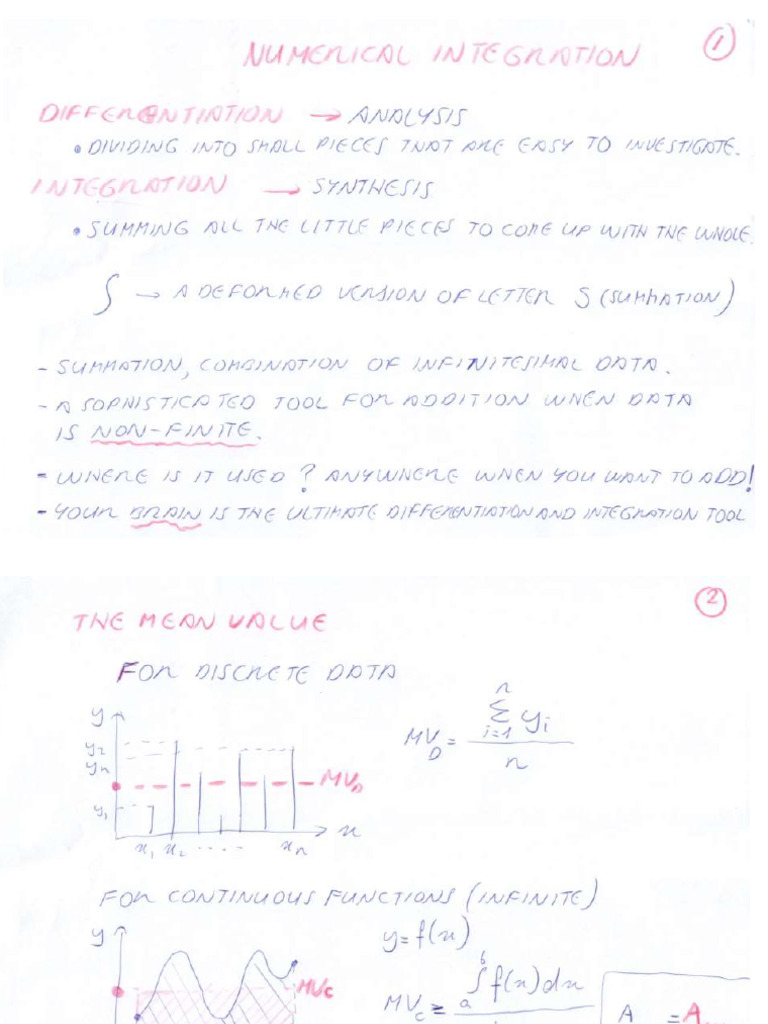 NUMERICAL INTEGRATION
1
DIFFERENTIATION → ANALYSIS
• DIVIDING INTO SMALL PIECES THAT ARE EASY TO INVESTIGATE.
INTEGRATION → SYNTHESIS
• SUMMING ALL THE LITTLE PIECES TO COME UP WITH THE WHOLE.
∫ → A DEFORMED VERSION OF LETTER S (SUMMATION)
- SUMMATION, COMBINATION OF INFINITESIMAL DATA.
- A SOPHISTICATED TOOL FOR ADDITION WHEN DATA
IS NON-FINITE.
- WHERE IS IT USED? ANYWHERE WHEN YOU WANT TO ADD!
- YOUR BRAIN IS THE ULTIMATE DIFFERENTIATION AND INTEGRATION TOOL
2
THE MEAN VALUE
FOR DISCRETE DATA
y
y2
yn
y1
MVD
x1 x2 .... xn
x
MVD = n Σ i=1 yi / n
FOR CONTINUOUS FUNCTIONS (INFINITE)
y
MVC
y=f(x)
MVC = b ∫ a f(x)dx
A = A